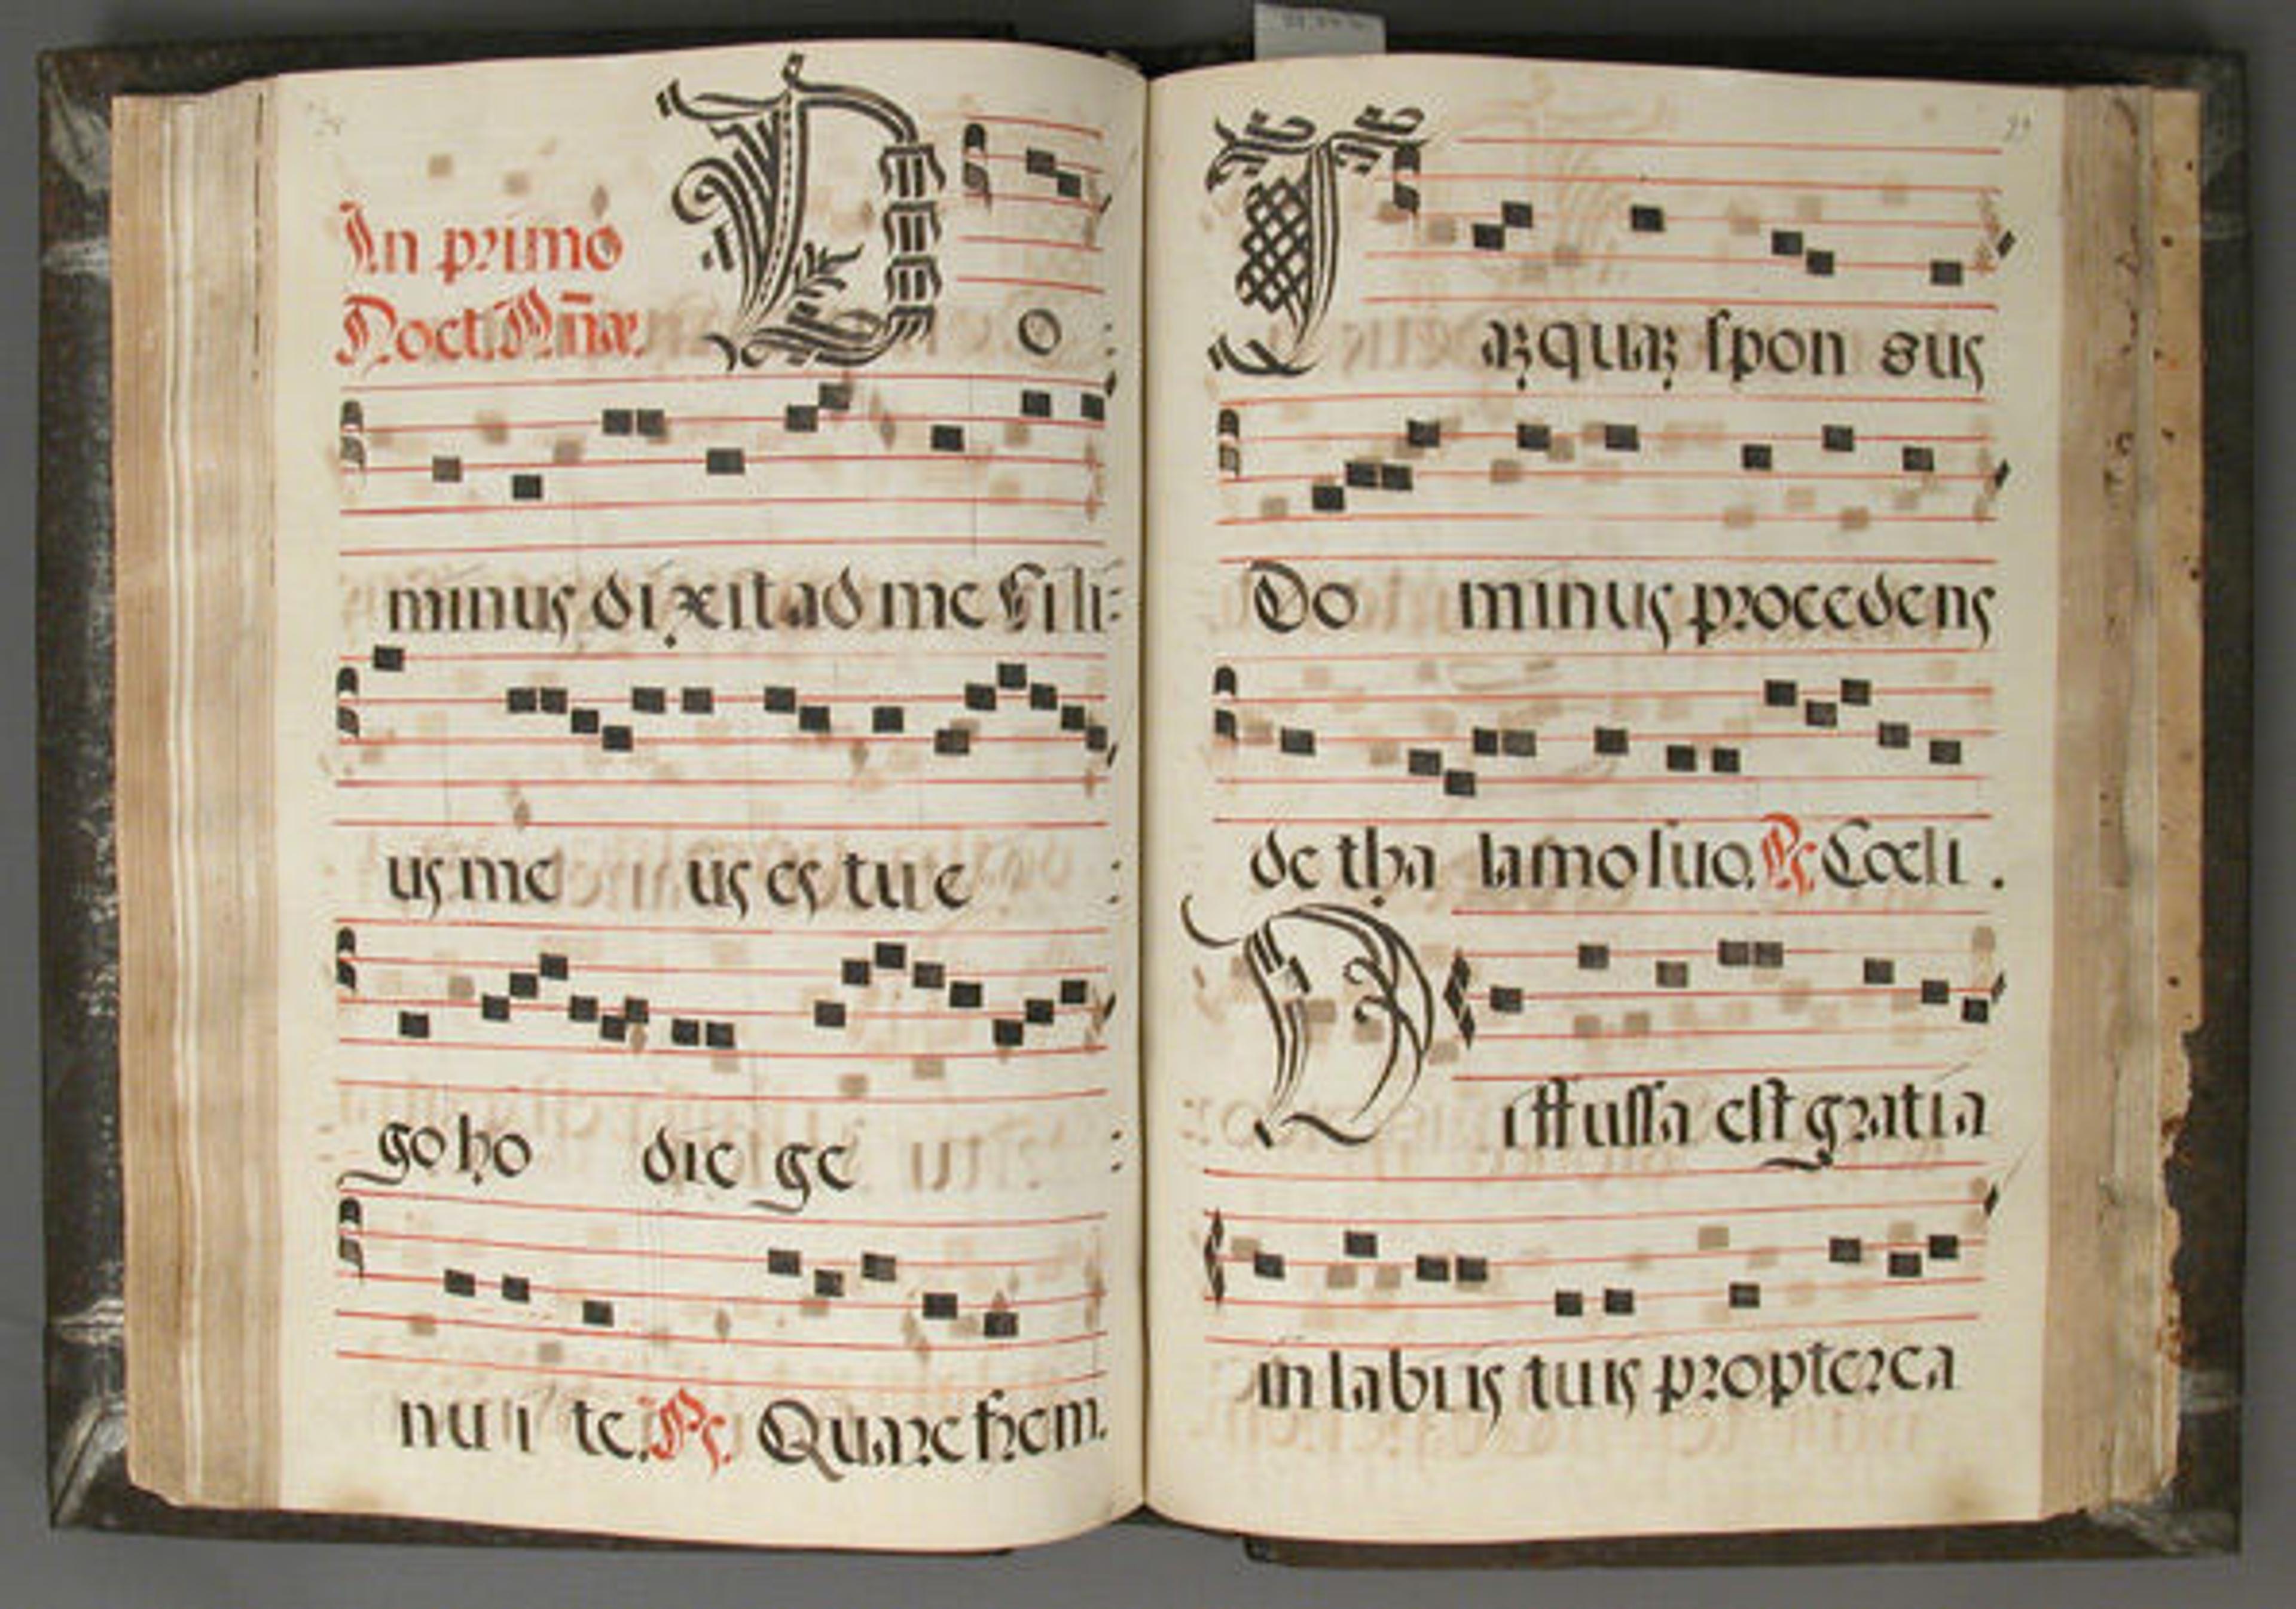 In primo
Noct. Añæ.
D o :
minus dixit ad me Fili:
us me us es tu e :
go ho die ge :
nu i te. ℟. Quare frem.
Tãquã spon sus
Do minus procedens
de tha lamo suo. ℟. Cœli .
Diffussa est gratia
in labiis tuis propterea